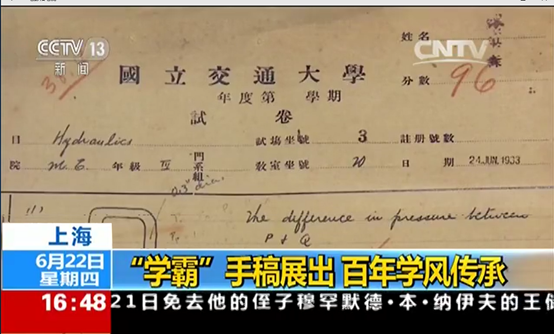 CCTV 13
新闻
CNTV
姓名
國立交通大學
分數 96
年度第 學期
試卷
目 Hydraulics 試場坐號 3 註冊號數
院 M.E. 年級 IV 門系組 教室坐號 20 日期 24.JUN.1933
(1)
The difference in pressure between
P & Q
上海
6月22日
星期四
“学霸”手稿展出 百年学风传承
16:48
21日免去他的侄子穆罕默德·本·纳伊夫的王储